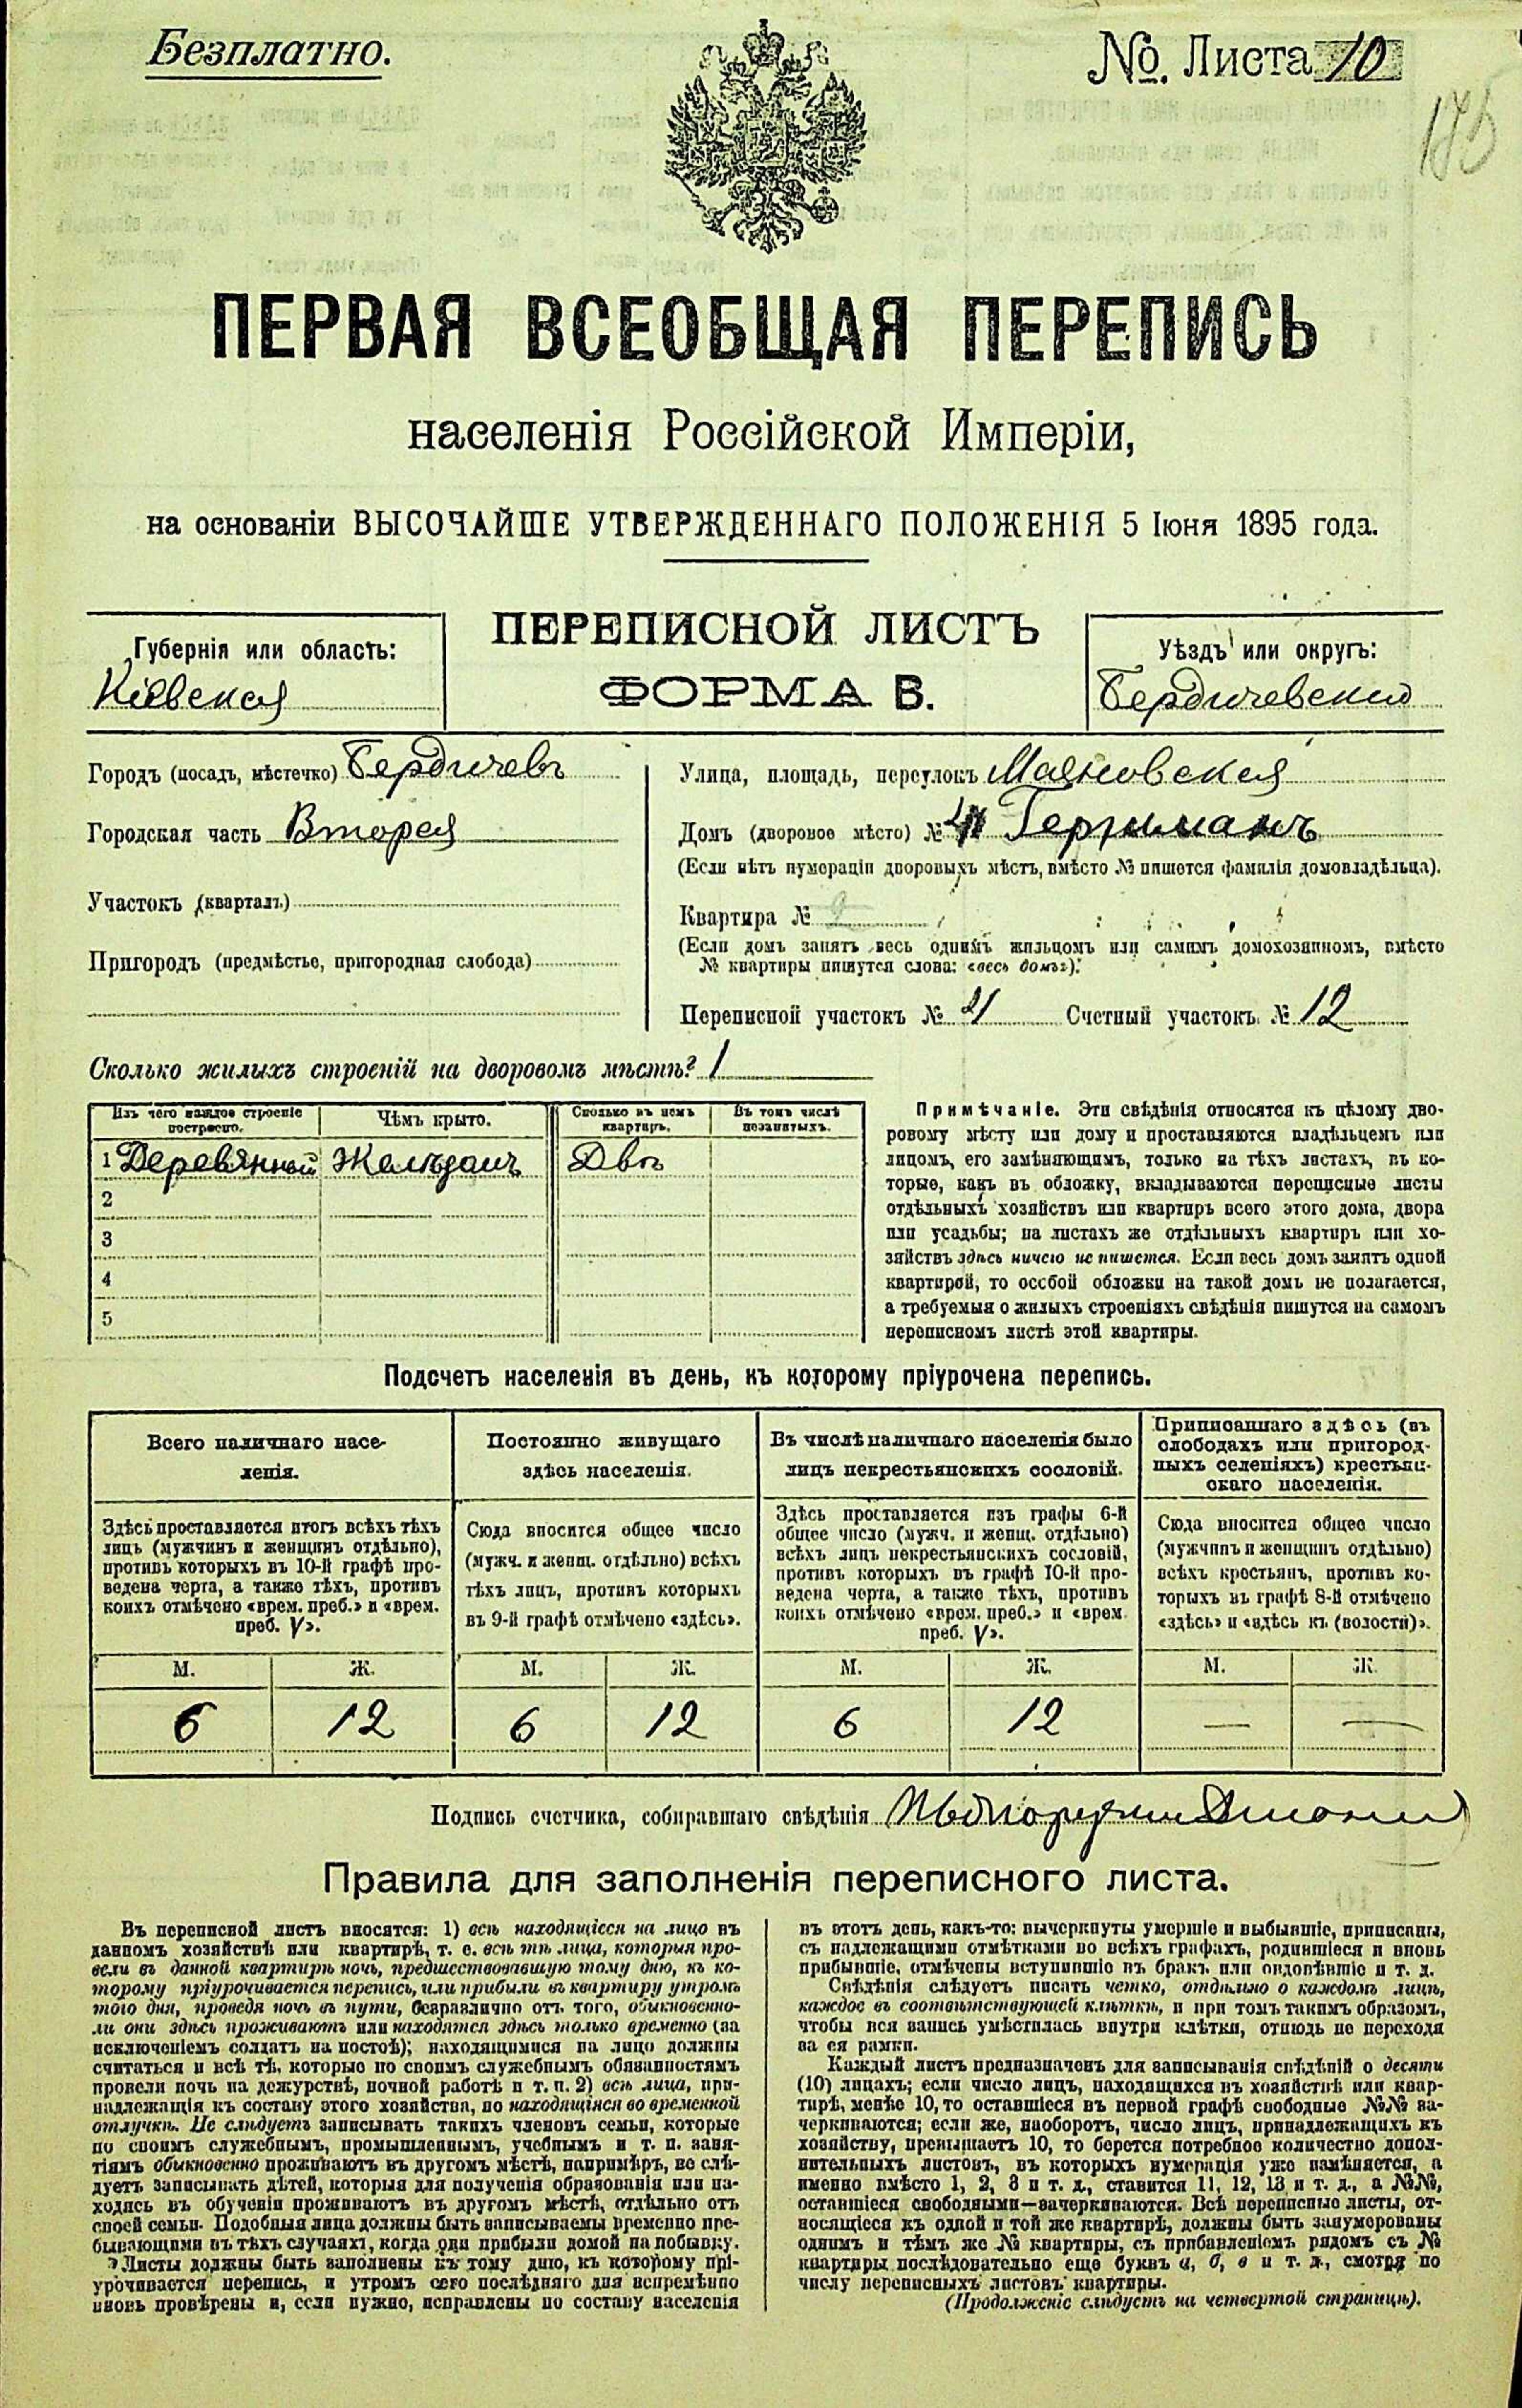 Безплатно.
№. Листа 10
175
ПЕРВАЯ ВСЕОБЩАЯ ПЕРЕПИСЬ
населенія Россійской Имперіи,
на основаніи ВЫСОЧАЙШЕ УТВЕРЖДЕННАГО ПОЛОЖЕНІЯ 5 Іюня 1895 года.
ПЕРЕПИСНОЙ ЛИСТЪ
ФОРМА В.
Губернія или область:
Кіевская
Уѣздъ или округъ:
Бердичевский
Городъ (посадъ, мѣстечко) Бердичевъ
Городская часть Вторая
Участокъ (кварталъ)
Пригородъ (предмѣстье, пригородная слобода)
Улица, площадь, переулокъ
Домъ (дворовое мѣсто) №
(Если нѣтъ нумераціи дворовыхъ мѣстъ, вмѣсто № пишется фамилія домовладѣльца).
Квартира №
(Если домъ занятъ весь однимъ жильцомъ или самимъ домохозяиномъ, вмѣсто
№ квартиры пишутся слова: «весь домъ»).
Переписной участокъ № Счетный участокъ № 12
Сколько жилыхъ строеній на дворовомъ мѣстѣ? 1
Изъ чего каждое строеніе построено.
Чѣмъ крыто.
Сколько въ немъ квартиръ.
Въ томъ числѣ незанятыхъ.
1 Деревянной Желѣзомъ Двѣ
2
3
4
5
Примѣчаніе. Эти свѣдѣнія относятся къ цѣлому дво-
ровому мѣсту или дому и проставляются владѣльцемъ или
лицомъ, его замѣняющимъ, только на тѣхъ листахъ, въ ко-
торые, какъ въ обложку, вкладываются переписные листы
отдѣльныхъ хозяйствъ или квартиръ всего этого дома, двора
или усадьбы; на листахъ же отдѣльныхъ квартиръ или хо-
зяйствъ здѣсь ничего не пишется. Если весь домъ занятъ одной
квартирой, то особой обложки на такой домъ не полагается,
а требуемыя о жилыхъ строеніяхъ свѣдѣнія пишутся на самомъ
переписномъ листѣ этой квартиры.
Подсчетъ населенія въ день, къ которому пріурочена перепись.
Всего наличнаго насе-
ленія.
Здѣсь проставляется итогъ всѣхъ тѣхъ
лицъ (мужчинъ и женщинъ отдѣльно),
противъ которыхъ въ 10-й графѣ про-
ведена черта, а также тѣхъ, противъ
коихъ отмѣчено «врем. преб.» и «врем.
преб. V».
Постоянно живущаго
здѣсь населенія.
Сюда вносится общее число
(мужч. и женщ. отдѣльно) всѣхъ
тѣхъ лицъ, противъ которыхъ
въ 9-й графѣ отмѣчено «здѣсь».
Въ числѣ наличнаго населенія было
лицъ некрестьянскихъ сословій.
Здѣсь проставляется изъ графы 6-й
общее число (мужч. и женщ. отдѣльно)
всѣхъ лицъ некрестьянскихъ сословій,
противъ которыхъ въ графѣ 10-й про-
ведена черта, а также тѣхъ, противъ
коихъ отмѣчено «врем. преб.» и «врем.
преб. V».
Приписаннаго здѣсь (въ
слободахъ или пригород-
ныхъ селеніяхъ) крестьян-
скаго населенія.
Сюда вносится общее число
(мужчинъ и женщинъ отдѣльно)
всѣхъ крестьянъ, противъ ко-
торыхъ въ графѣ 8-й отмѣчено
«здѣсь» и «здѣсь къ (волости)».
М. Ж. М. Ж. М. Ж. М. Ж.
6 12 6 12 6 12 — —
Подпись счетчика, собиравшаго свѣдѣнія
Правила для заполненія переписного листа.
Въ переписной листъ вносятся: 1) всѣ находящіеся на лицо въ
данномъ хозяйствѣ или квартирѣ, т. е. всѣ тѣ лица, которыя про-
вели въ данной квартирѣ ночь, предшествовавшую тому дню, къ ко-
торому пріурочивается перепись, или прибыли въ квартиру утромъ
того дня, проведя ночь въ пути, безразлично отъ того, обыкновенно-
ли они здѣсь проживаютъ или находятся здѣсь только временно (за
исключеніемъ солдатъ на постоѣ); находящимися на лицо должны
считаться и всѣ тѣ, которые по своимъ служебнымъ обязанностямъ
провели ночь на дежурствѣ, ночной работѣ и т. п. 2) всѣ лица, при-
надлежащія къ составу этого хозяйства, но находящіяся во временной
отлучкѣ. Не слѣдуетъ записывать такихъ членовъ семьи, которые
по своимъ служебнымъ, промышленнымъ, учебнымъ и т. п. заня-
тіямъ обыкновенно проживаютъ въ другомъ мѣстѣ, напримѣръ, не слѣ-
дуетъ записывать дѣтей, которыя для полученія образованія или на-
ходясь въ обученіи проживаютъ въ другомъ мѣстѣ, отдѣльно отъ
своей семьи. Подобныя лица должны быть записываемы временно пре-
бывающими въ тѣхъ случаяхъ, когда они прибыли домой на побывку.
Листы должны быть заполнены къ тому дню, къ которому прі-
урочивается перепись, и утромъ сего послѣдняго дня непремѣнно
вновь провѣрены и, если нужно, исправлены по составу населенія
въ этотъ день, какъ-то: вычеркнуты умершіе и выбывшіе, приписаны,
съ надлежащими отмѣтками во всѣхъ графахъ, родившіеся и вновь
прибывшіе, отмѣчены вступившіе въ бракъ или овдовѣвшіе и т. д.
Свѣдѣнія слѣдуетъ писать четко, отдѣльно о каждомъ лицѣ,
каждое въ соотвѣтствующей клѣткѣ, и при томъ такимъ образомъ,
чтобы вся запись умѣстилась внутри клѣтки, отнюдь не переходя
за ея рамки.
Каждый листъ предназначенъ для записыванія свѣдѣній о десяти
(10) лицахъ; если число лицъ, находящихся въ хозяйствѣ или квар-
тирѣ, менѣе 10, то оставшіеся въ первой графѣ свободные №№ за-
черкиваются; если же, наоборотъ, число лицъ, принадлежащихъ къ
хозяйству, превышаетъ 10, то берется потребное количество допол-
нительныхъ листовъ, въ которыхъ нумерація уже измѣняется, а
именно вмѣсто 1, 2, 3 и т. д., ставится 11, 12, 13 и т. д., а №№,
оставшіеся свободными—зачеркиваются. Всѣ переписные листы, от-
носящіеся къ одной и той же квартирѣ, должны быть занумерованы
однимъ и тѣмъ же № квартиры, съ прибавленіемъ рядомъ съ №
квартиры послѣдовательно еще буквъ а, б, в и т. д., смотря по
числу переписныхъ листовъ квартиры.
(Продолженіе слѣдуетъ на четвертой страницѣ).